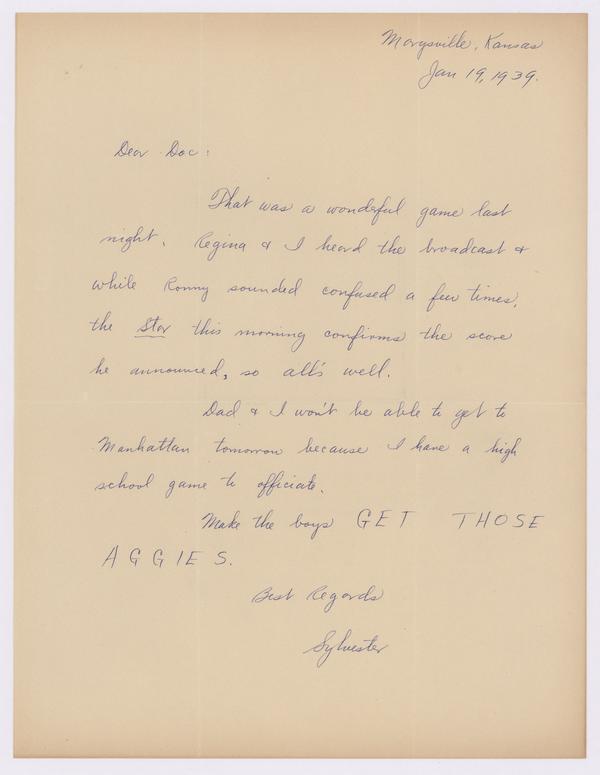 Marysville, Kansas
Jan 19, 1939.
Dear Doc:
That was a wonderful game last
night. Regina & I heard the broadcast &
while Ronny sounded confused a few times,
the Star this morning confirms the score
he announced, so all's well.
Dad & I won't be able to get to
Manhattan tomorrow because I have a high
school game to officiate.
Make the boys GET THOSE
AGGIES.
Best Regards
Sylvester